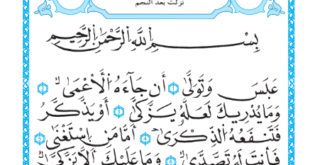 نزلت بعد النجم
بِسْمِ اللَّهِ الرَّحْمَٰنِ الرَّحِيمِ
عَبَسَ وَتَوَلَّىٰ ١ أَن جَاءَهُ الْأَعْمَىٰ ٢
وَمَا يُدْرِيكَ لَعَلَّهُ يَزَّكَّىٰ ٣ أَوْ يَذَّكَّرُ
فَتَنفَعَهُ الذِّكْرَىٰ ٤ أَمَّا مَنِ اسْتَغْنَىٰ ٥
فَأَنتَ لَهُ تَصَدَّىٰ ٦ وَمَا عَلَيْكَ أَلَّا يَزَّكَّىٰ ٧